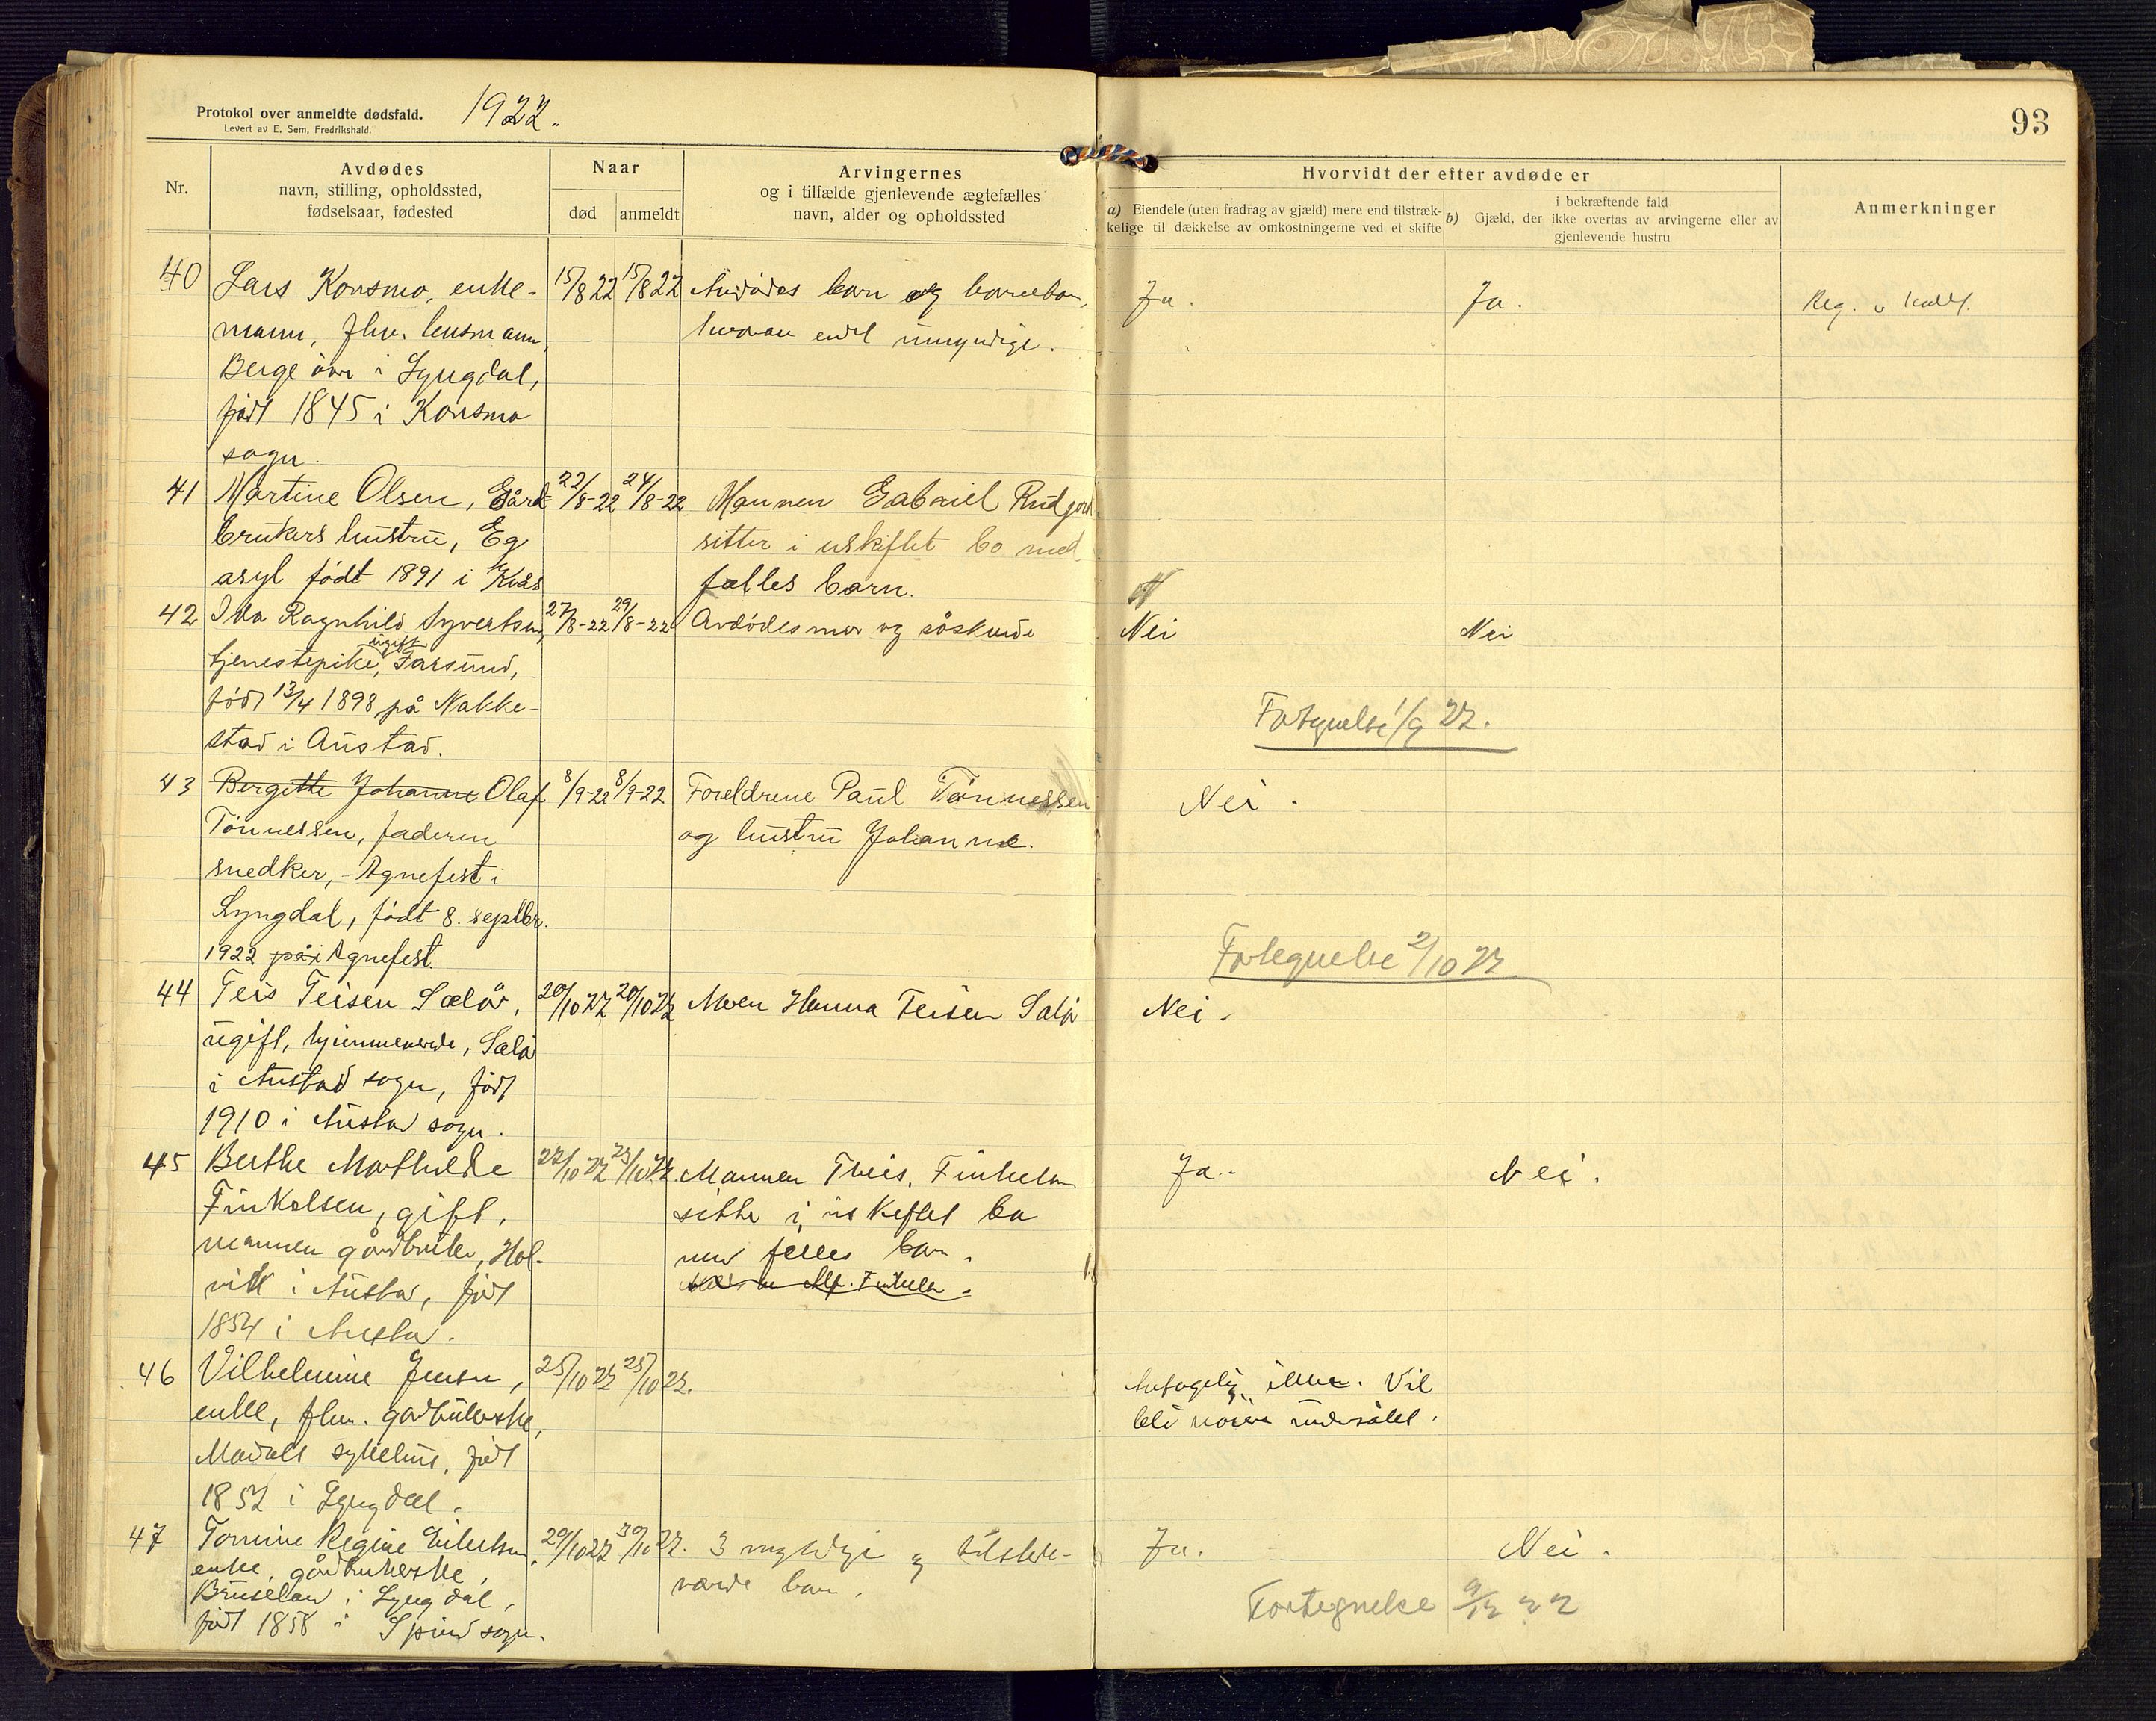 Protokol over anmeldte dødsfald. 1922.
Levert av E. Sem, Fredrikshald.
93
Nr.
Avdødes
navn, stilling, opholdssted,
fødselsaar, fødested
Naar
død anmeldt
Arvingernes
og i tilfælde gjenlevende ægtefælles
navn, alder og opholdssted
Hvorvidt der efter avdøde er
a) Eiendele (uten fradrag av gjæld) mere end tilstræk-
kelige til dækkelse av omkostningerne ved et skifte
i bekræftende fald
b) Gjæld, der ikke overtas av arvingerne eller av
gjenlevende hustru
Anmerkninger
40 Lars Konsmo, enke- 15/8 22 15/8 22 Avdødes barn og barnebarn, Ja. Ja. Reg.
mann, fhv. lensmann, hvorav endel umyndige.
Berge øvre i Lyngdal,
født 1845 i Konsmo
sogn.
41 Martine Olsen, Gård- 22/8-22 24/8-22 Mannen Gabriel
brukers hustru, Eg sitter i uskiftet bo med
asyl født 1891 i Kvås felles barn.
42 Ida Ragnhild Syvertsen, 27/8-22 29/8-22 Avdødes mor og søskende Nei Nei
tjenestepike, ugift, Farsund,
født 13/4 1898 på Nakke-
stad i Austad.
Fortegnelse 1/9 22.
43 Bergitte Johanne Olaf 8/9-22 8/9-22 Foreldrene Paul Tönnessen Nei.
Tönnessen, faderen og hustru Johanne.
snedker, - Agnefest i
Lyngdal, født 8. septbr.
1922 på i Agnefest.
Fortegnelse 2/10 22
44 Teis Teisen Sælør, 20/10 22 20/10 22 Moren Hanna Teisen Sælør Nei.
ugift, hjemmeværende, Sælør
i Austad sogn, født
1910 i Austad sogn.
45 Berthe Mathilde 22/10 22 23/10 22. Mannen Theis Finkelsen Ja. Nei.
Finkelsen, gift, sitter i uskiftet bo
mannen gårdbruker, Hol- med felles barn.
vik i Austad, født
1854 i Austad.
46 Vilhelmine Jensen, 25/10 22 25/10 22. Antagelig ikke. Vil
enke, fhv. gårdbrukerske, bli nøiere undersøkt.
sykehus, født
1852 i Lyngdal.
47 Tomine Regine Eilertsen, 29/10 22 30/10 22. 3 myndige og tilstede- Ja. Nei.
enke, gårdbrukerske, værende barn.
Bruseland i Lyngdal,
født 1858 i Spind sogn.
Fortegnelse 9/12 22